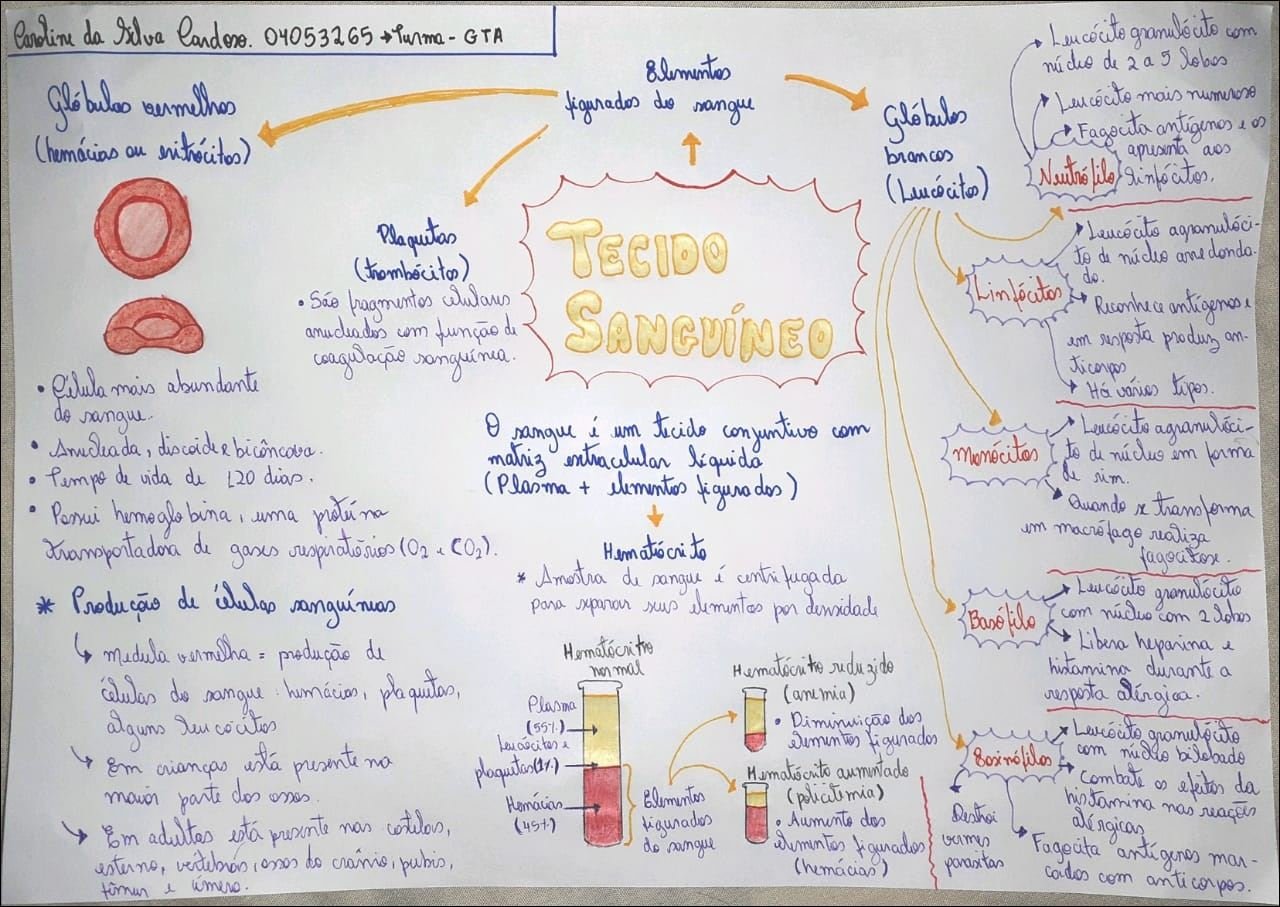 Caroline da Silva Cardoso. 04053265 → Turma - GTA
Elementos
figurados do sangue
Glóbulos vermelhos
(hemácias ou eritrócitos)
• Célula mais abundante
do sangue.
• Anucleada, discoide e bicôncava.
• Tempo de vida de 120 dias.
• Possui hemoglobina, uma proteína
transportadora de gases respiratórios (O2 e CO2).
* Produção de células sanguíneas
↳ Medula vermelha = produção de
células do sangue: hemácias, plaquetas,
alguns leucócitos
↳ Em crianças está presente na
maior parte dos ossos.
↳ Em adultos está presente nas costelas,
esterno, vértebras, ossos do crânio, pubis,
fêmur e úmero.
Plaquetas
(trombócitos)
• São fragmentos celulares
anucleados com função de
coagulação sanguínea.
TECIDO
SANGUÍNEO
O sangue é um tecido conjuntivo com
matriz extracelular líquida
(Plasma + elementos figurados)
Hematócrito
* Amostra de sangue é centrifugada
para separar seus elementos por densidade
Hematócritro
normal
Plasma
(55%)
Leucócitos e
plaquetas (1%)
Hemácias
(45%)
Elementos
figurados
do sangue
Hematócritro reduzido
(anemia)
• Diminuição dos
elementos figurados
Hematócritro aumentado
(policitemia)
• Aumento dos
elementos figurados
(hemácias)
Glóbulos
brancos
(Leucócitos)
Neutrófilo
Leucócito granulócito com
núcleo de 2 a 5 lobos
Leucócito mais numeroso
Fagocita antígenos e os
apresenta aos
linfócitos.
Linfócitos
Leucócito agranulóci-
to de núcleo arredonda-
do.
Reconhece antígenos e
em resposta produz an-
ticorpos
Há vários tipos.
Monócitos
Leucócito agranulóci-
to de núcleo em forma
de rim.
Quando se transforma
em macrófago realiza
fagocitose.
Basófilo
Leucócito granulócito
com núcleo com 2 lobos
Libera heparina e
histamina durante a
resposta alérgica.
Eosinófilos
Leucócito granulócito
com núcleo bilobado
Combate os efeitos da
histamina nas reações
alérgicas
Destroi
vermes
parasitas
Fagocita antígenos mar-
cados com anticorpos.